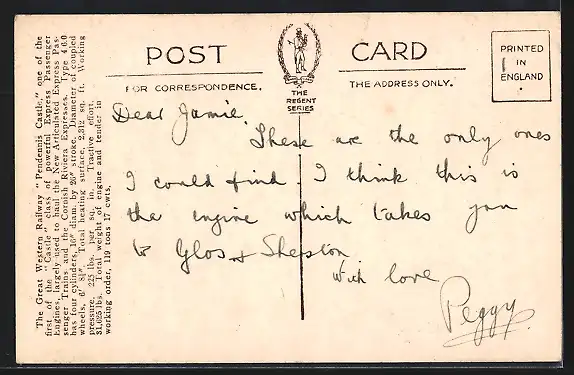 POST CARD
FOR CORRESPONDENCE.
THE ADDRESS ONLY.
THE
REGENT
SERIES
PRINTED
IN
ENGLAND
The Great Western Railway "Pendennis Castle," one of the
first of the "Castle" class of powerful Express Passenger
Engines, largely used to haul the New Articulated Express Pas-
senger Trains and the Cornish Riviera Expresses. Type 4 6 0
has four cylinders, 16" diam. by 26" stroke. Diameter of coupled
wheels, 6' 8½". Total heating surface, 2,312 sq. ft. Working
pressure, 225 lbs. per sq. in. Tractive effort,
31,625 lbs. Total weight of engine and tender in
working order, 119 tons 17 cwts.
Dear Jamie,
These are the only ones
I could find. I think this is
the engine which takes you
to Glos & Shepton
with love
Peggy.